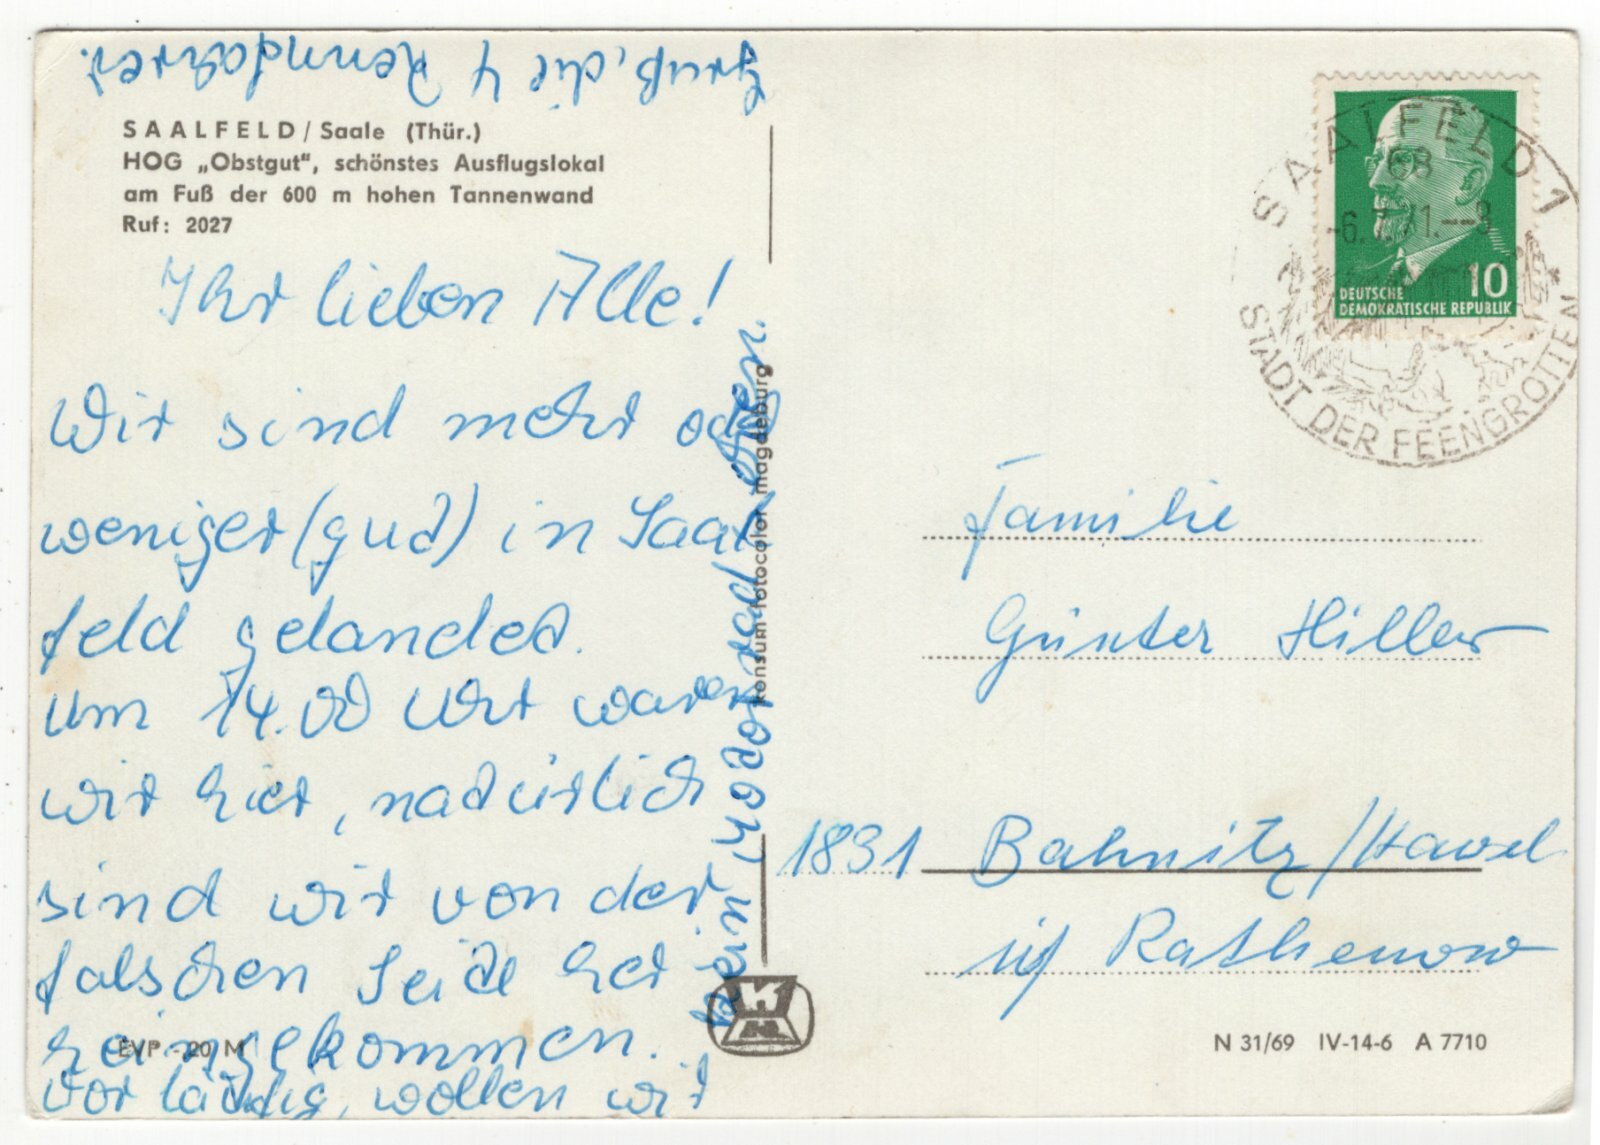 SAALFELD / Saale (Thür.)
HOG „Obstgut“, schönstes Ausflugslokal
am Fuß der 600 m hohen Tannenwand
Ruf: 2027
Ihr lieben Alle!
Wir sind mehr oder
weniger (gut) in Saal
feld gelandet.
Um 14.00 Uhr waren
wir hier, natürlich
sind wir von der
falschen Seite her
reingekommen.
Vorläufig wollen wir
kein Motorrad
Gruß, die 4
konsum fotocolor magdeburg
EVP -20 M
SAALFELD 1
68
-6.7.71.--8
STADT DER FEENGROTTEN
10
DEUTSCHE
DEMOKRATISCHE REPUBLIK
Familie
Günter Hiller
1831 Bahnitz/Havel
Rathenow
N 31/69 IV-14-6 A 7710